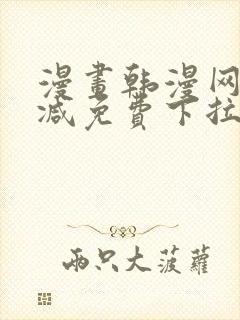 漫畫韩漫网
减免費下拉
兩只大菠蘿